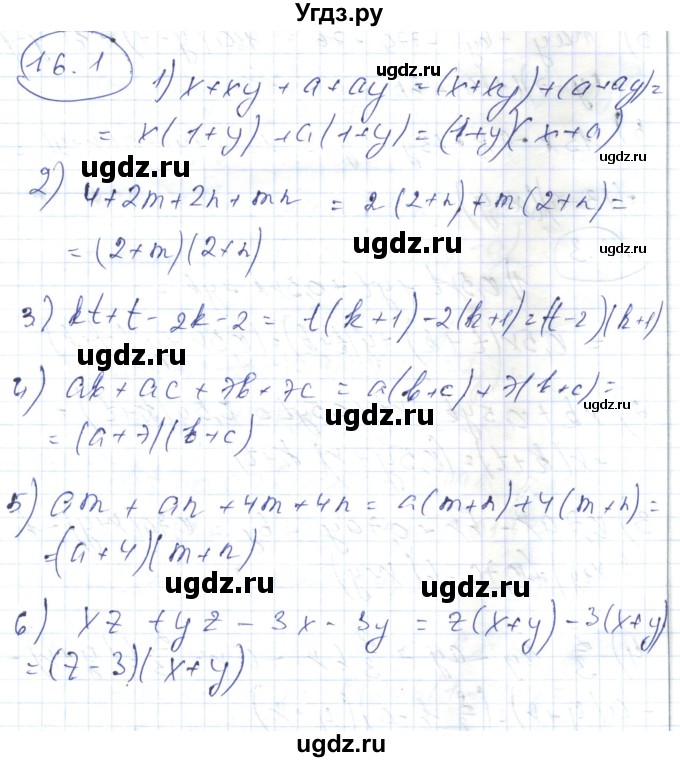 Угдз.ру
16.1
1) x+xy + a + ay = (x+xy)+(a+ay)=
= x(1+y)+a(1+y)=(1+y)(x+a)
ugdz.ru
ugdz.ru
2) 4+2m+2n+mn = 2(2+n)+m(2+n)=
ugdz.ru
=(2+m)(2+n)
ugdz.ru
3) kt+t-2k-2 = t(k+1)-2(k+1)=(t-2)(k+1)
ugdz.ru
4) ab+ac+7b+7c = a(b+c)+7(b+c)=
ugdz.ru
=(a+7)(b+c)
ugdz.ru
5) am + an +4m+4n = a(m+n)+4(m+n)=
ugdz.ru
=(a+4)(m+n)
ugdz.ru
ugdz.ru
6) xz +yz - 3x - 3y = z(x+y)-3(x+y)
=(z-3)(x+y)
ugdz.ru
ugdz.ru